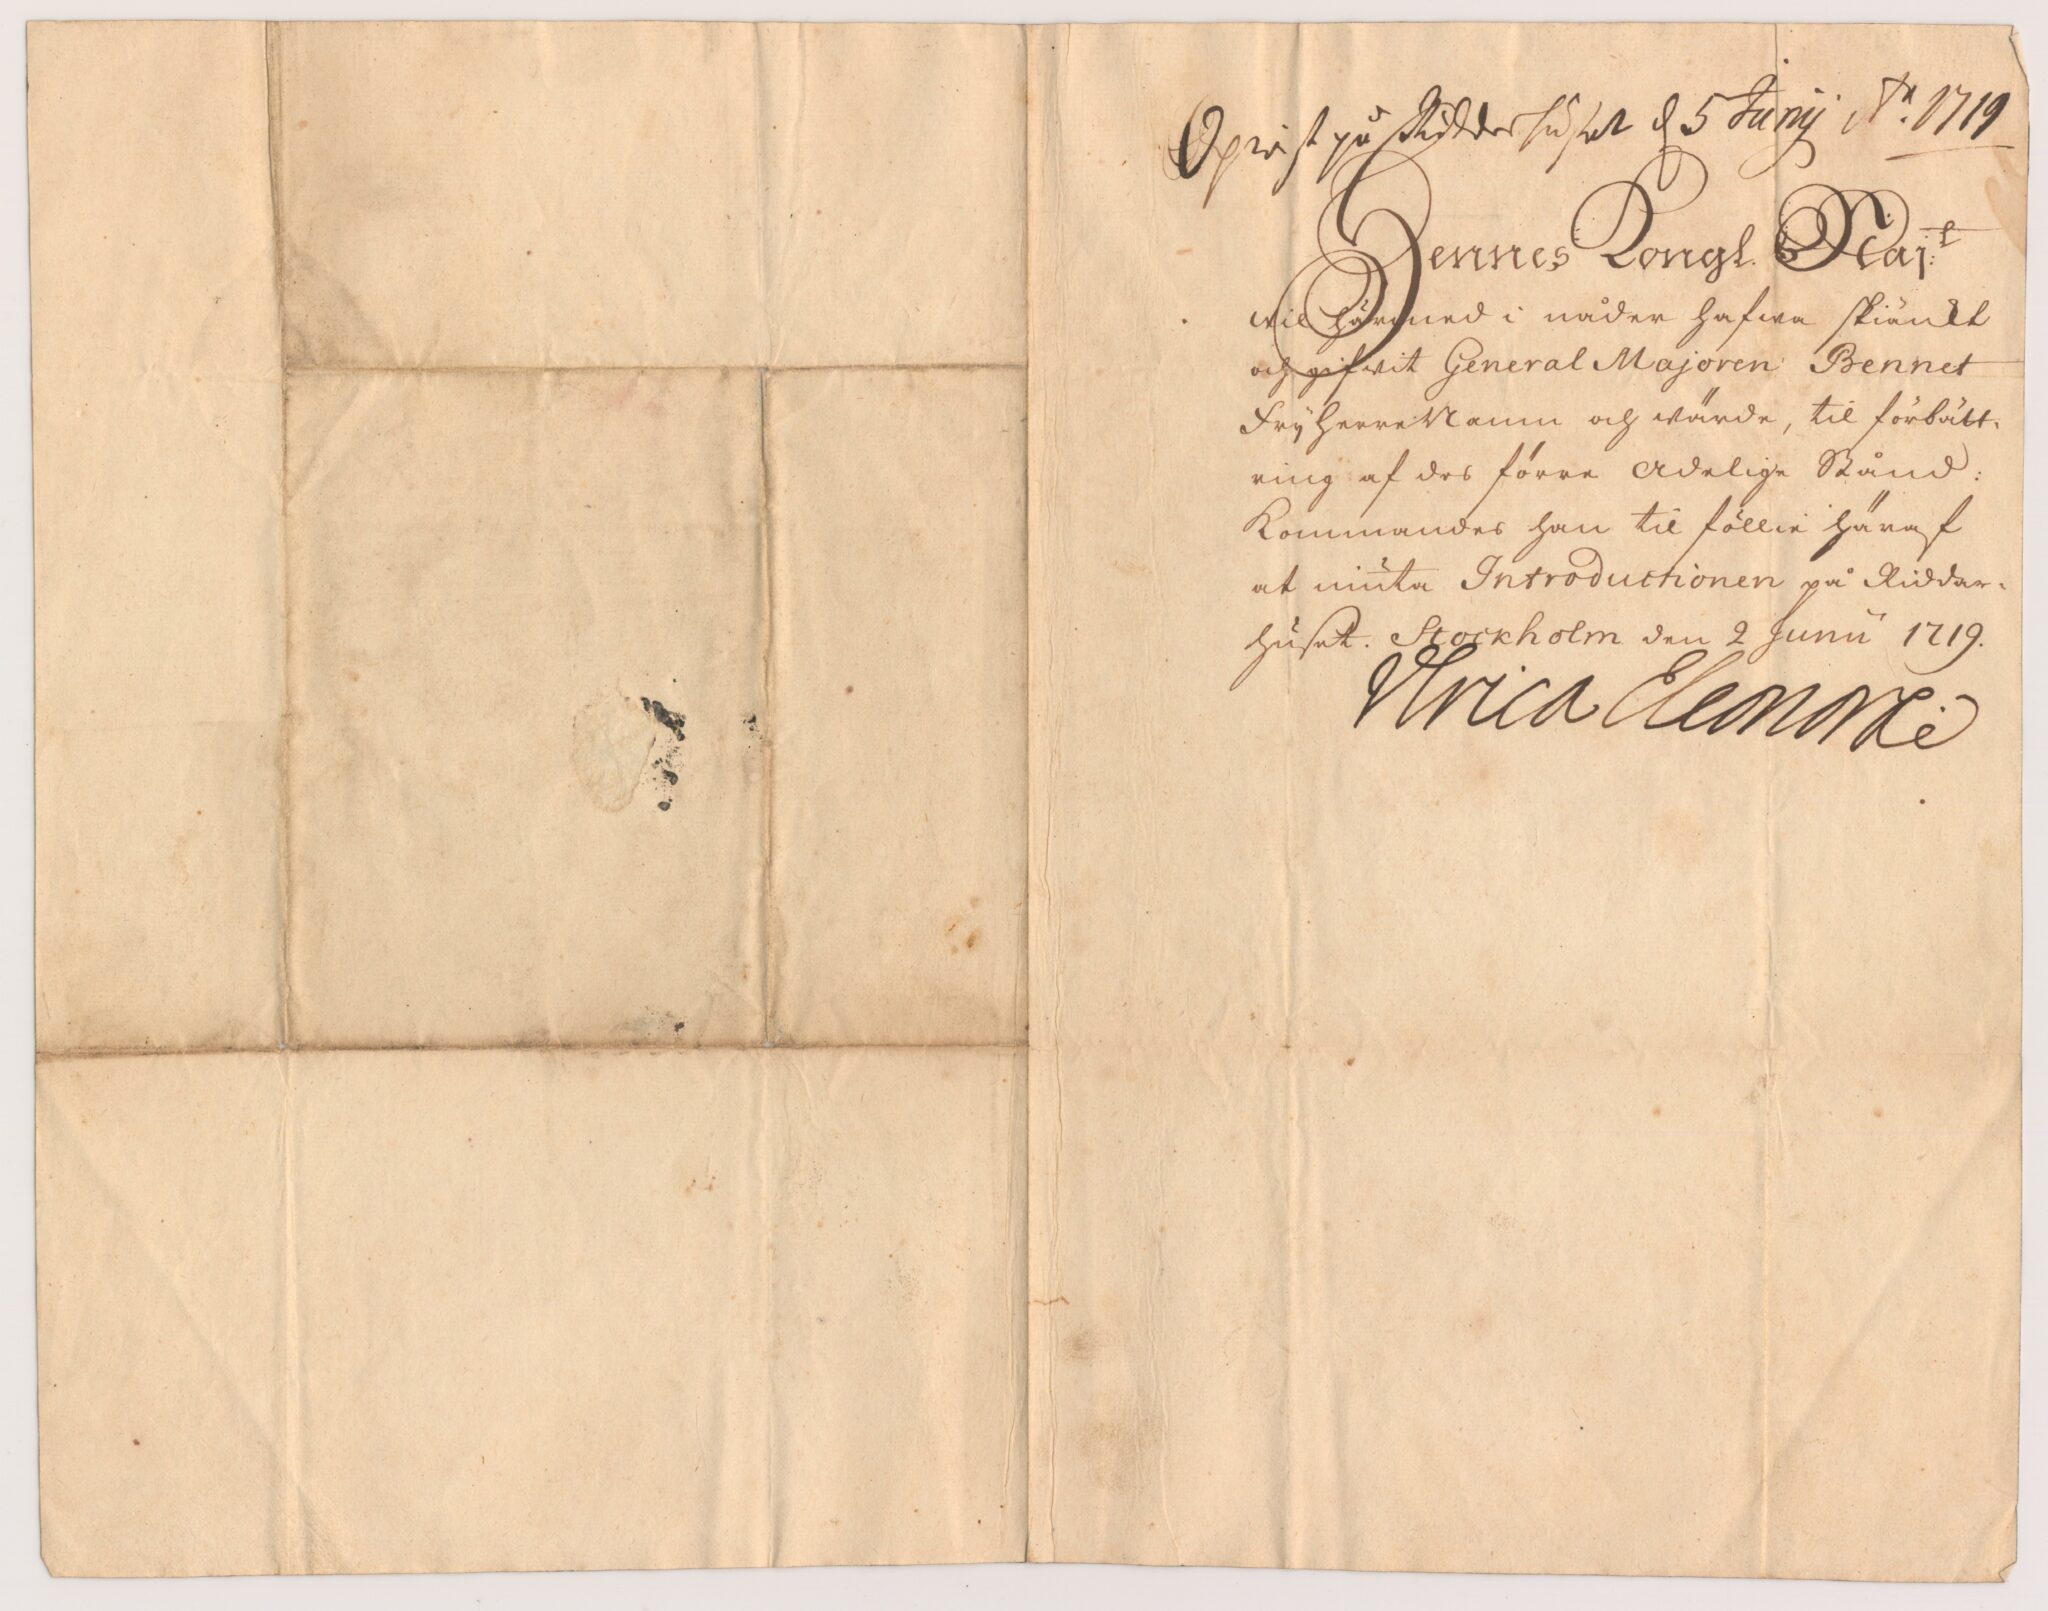 Opvist på Ridderhuset d 5 Junij A:o 1719
Hennes Kongl. Maj:t
vil härmed i nåder hafwa skiänkt
och gifvit General Majoren Bennet
FryHerre Namn och värde, til förbätt-
ring af des förre Adelige Stånd:
Kommandes han til föllie häraf
at niuta Introductionen på Riddar-
huset. Stockholm den 2 Junii 1719.
Ulrica Eleonora